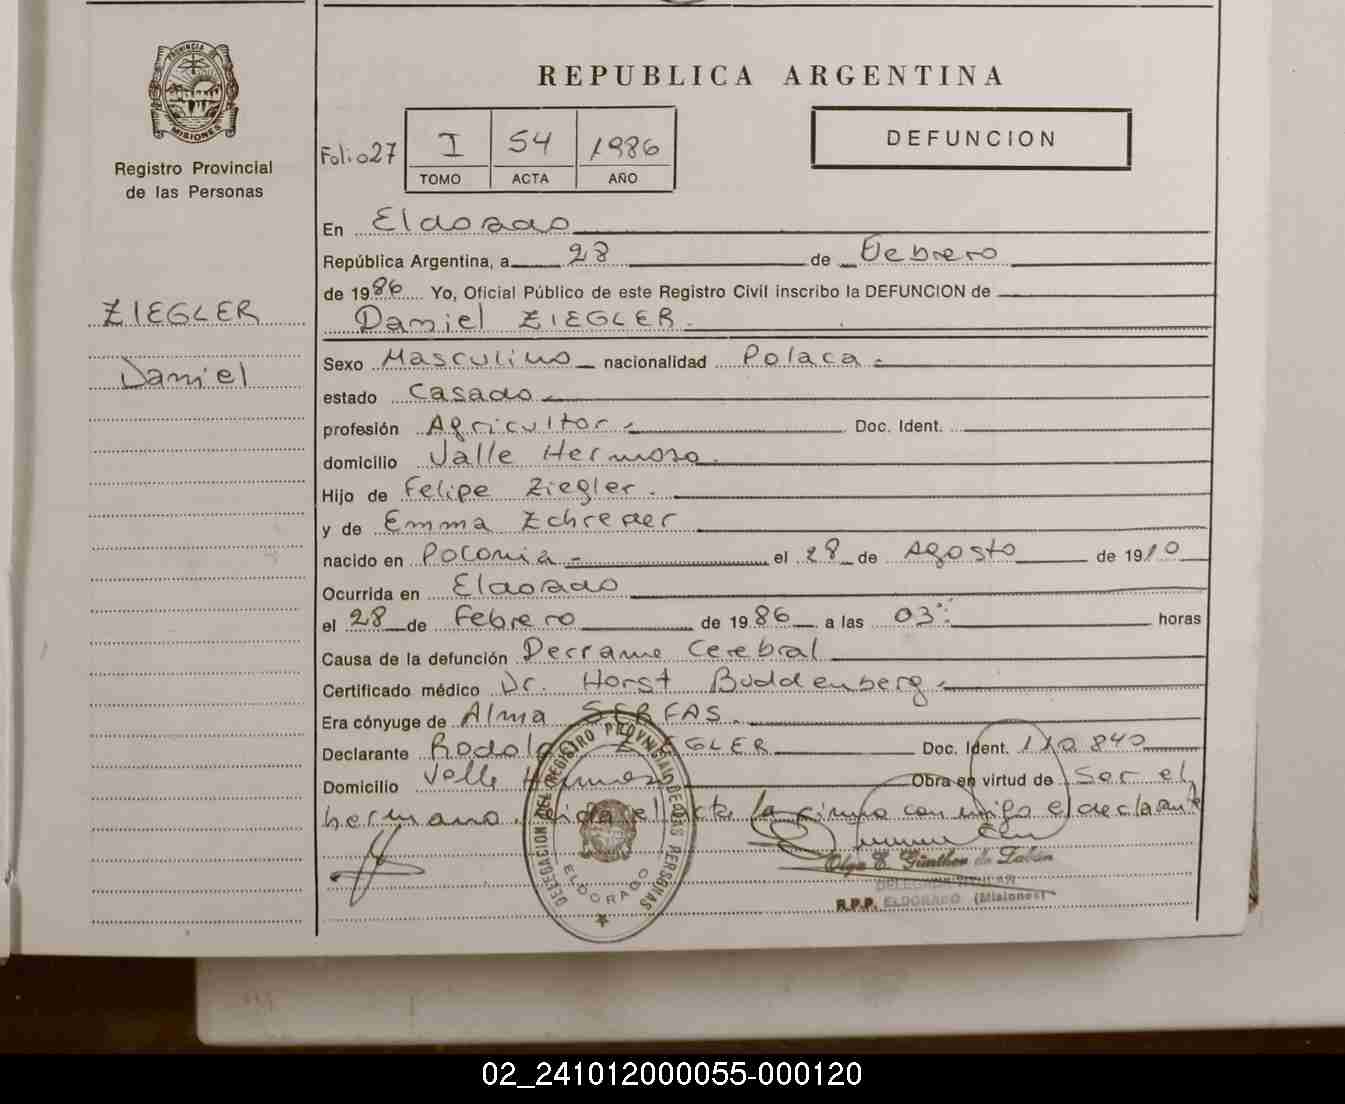 PROVINCIA DE
MISIONES
Registro Provincial
de las Personas
ZIEGLER
Daniel
REPUBLICA ARGENTINA
Folio 27
I 54 1986
TOMO ACTA AÑO
DEFUNCION
En Eldorado
República Argentina, a 28 de Febrero
de 1986 Yo, Oficial Público de este Registro Civil inscribo la DEFUNCION de
Daniel ZIEGLER.
Sexo Masculino nacionalidad Polaca.
estado Casado
profesión Agricultor Doc. Ident.
domicilio Valle Hermoso.
Hijo de Felipe Ziegler.
y de Emma Zchreder
nacido en Polonia el 28 de Agosto de 1910
Ocurrida en Eldorado
el 28 de Febrero de 1986 a las 03: horas
Causa de la defunción Derrame Cerebral
Certificado médico Dr. Horst Buddenberg.
Era cónyuge de Alma SERFAS.
Declarante Rodolfo ZIEGLER Doc. Ident. 110.840
Domicilio Valle Hermoso Obra en virtud de Ser el
hermano. Leida el acta la firma conmigo el declarante
DELEGACION DEL REGISTRO PROVINCIAL DE LAS PERSONAS
ELDORADO
Olga E. Günther de Zabán
DELEGADA TITULAR
R.P.P. ELDORADO (Misiones)
02_241012000055-000120